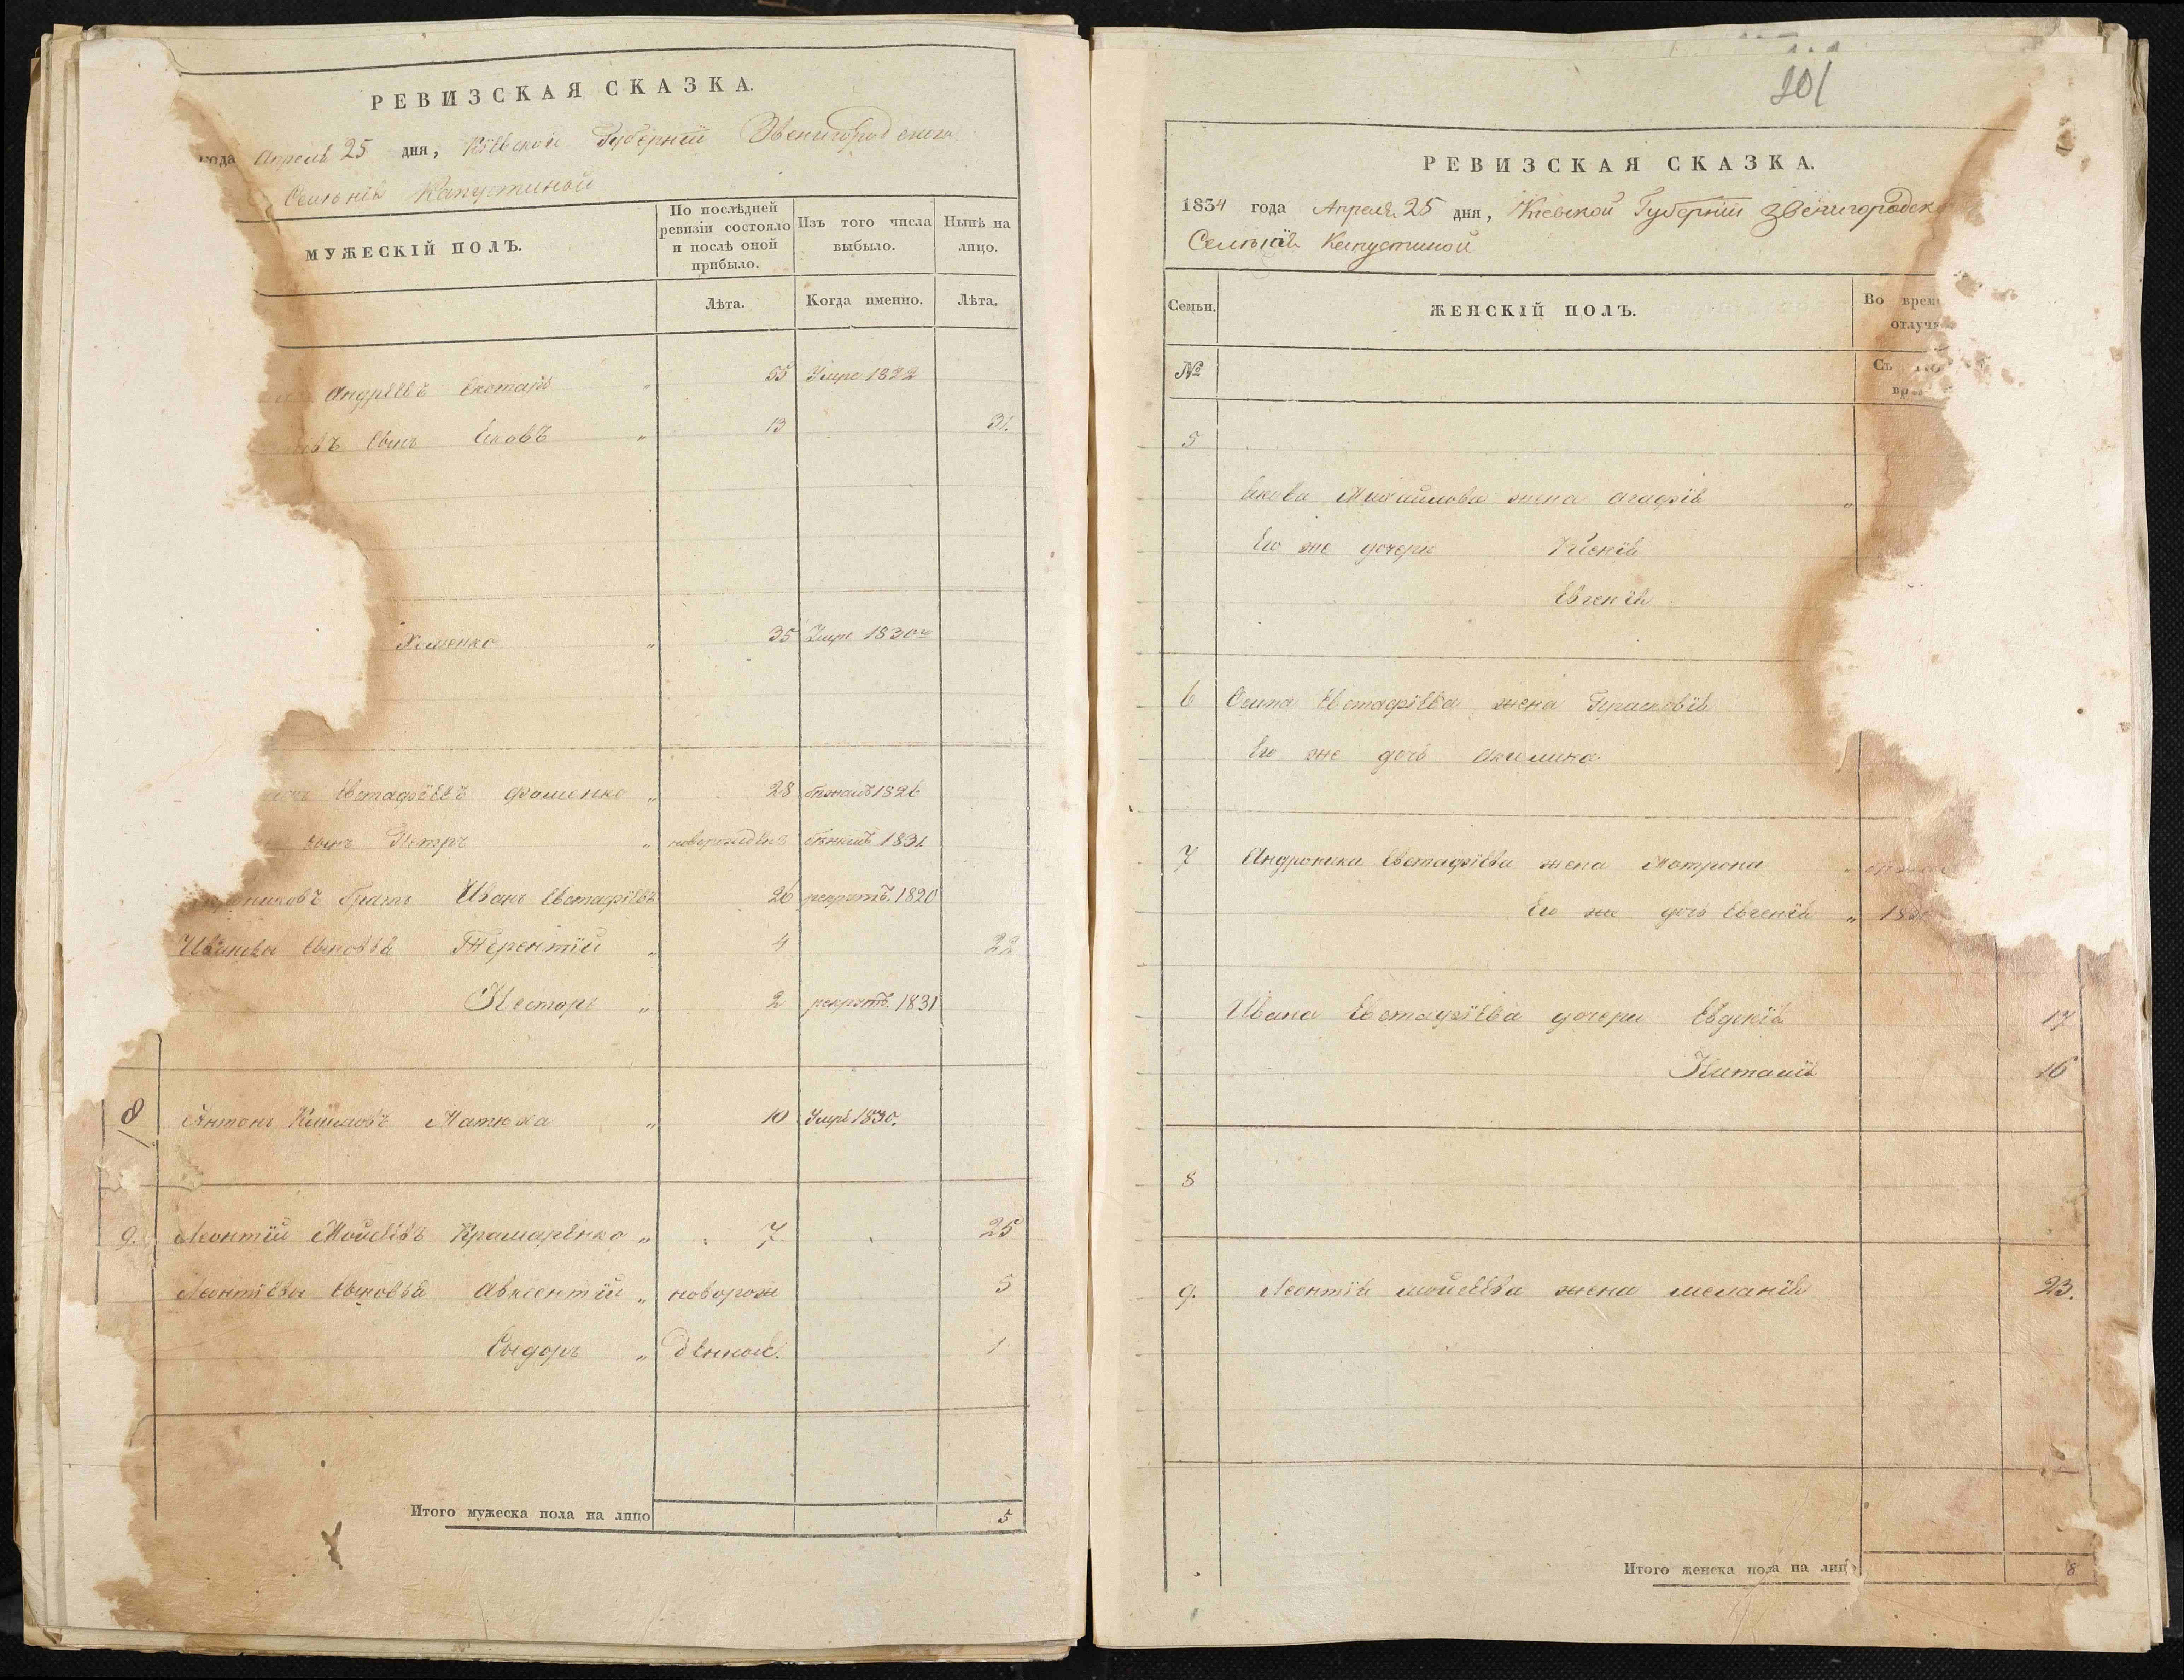 РЕВИЗСКАЯ СКАЗКА.
года Апреля 25 дня, Кіевской Губерніи Звенигородскаго
Селенія Капустиной
МУЖЕСКІЙ ПОЛЪ.
По послѣдней ревизіи состояло и послѣ оной прибыло.
Изъ того числа выбыло.
Нынѣ на лицо.
Лѣта.
Когда именно.
Лѣта.
Андреевъ 55 Умре 1822
Сынъ Яковъ 13 31.
Хоменко 35 Умре 1830го
Евстафіевъ Фоменко 28 бѣжалъ 1826
сынъ Петръ новорожденъ бѣжалъ 1831
братъ Иванъ Евстафіевъ 26 рекрутъ. 1820
Ивановы Сыновья Терентій 4 22
Несторъ 2 рекрутъ. 1831
8 Антонъ Климовъ Матюха 10 Умре 1830.
9. Леонтій Мойсеевъ Крамаренко 7 25
Леонтіевы Сыновья Авксентій новорож 5
Сыдоръ денные. 1
Итого мужеска пола на лицо 5
201
РЕВИЗСКАЯ СКАЗКА.
1834 года Апреля 25 дня, Кіевской Губерніи Звенигородск
Селенія Капустиной
Семьи.
ЖЕНСКІЙ ПОЛЪ.
Во врем
отлуч
№
Съ
вр
5
Якова Михайлова жена Агафія
Его же дочери Ксенія
Евгенія
6 Осипа Евстафіева жена Прасковія
Его же дочь Акилина
7 Андроника Евстафіева жена Мотрона
Его же дочь Евгенія 183
Ивана Евстафіева дочери Евдокія 17
Наталія 16
8
9. Леонтія Мойсеева жена Меланія 23.
Итого женска пола на лицо 8